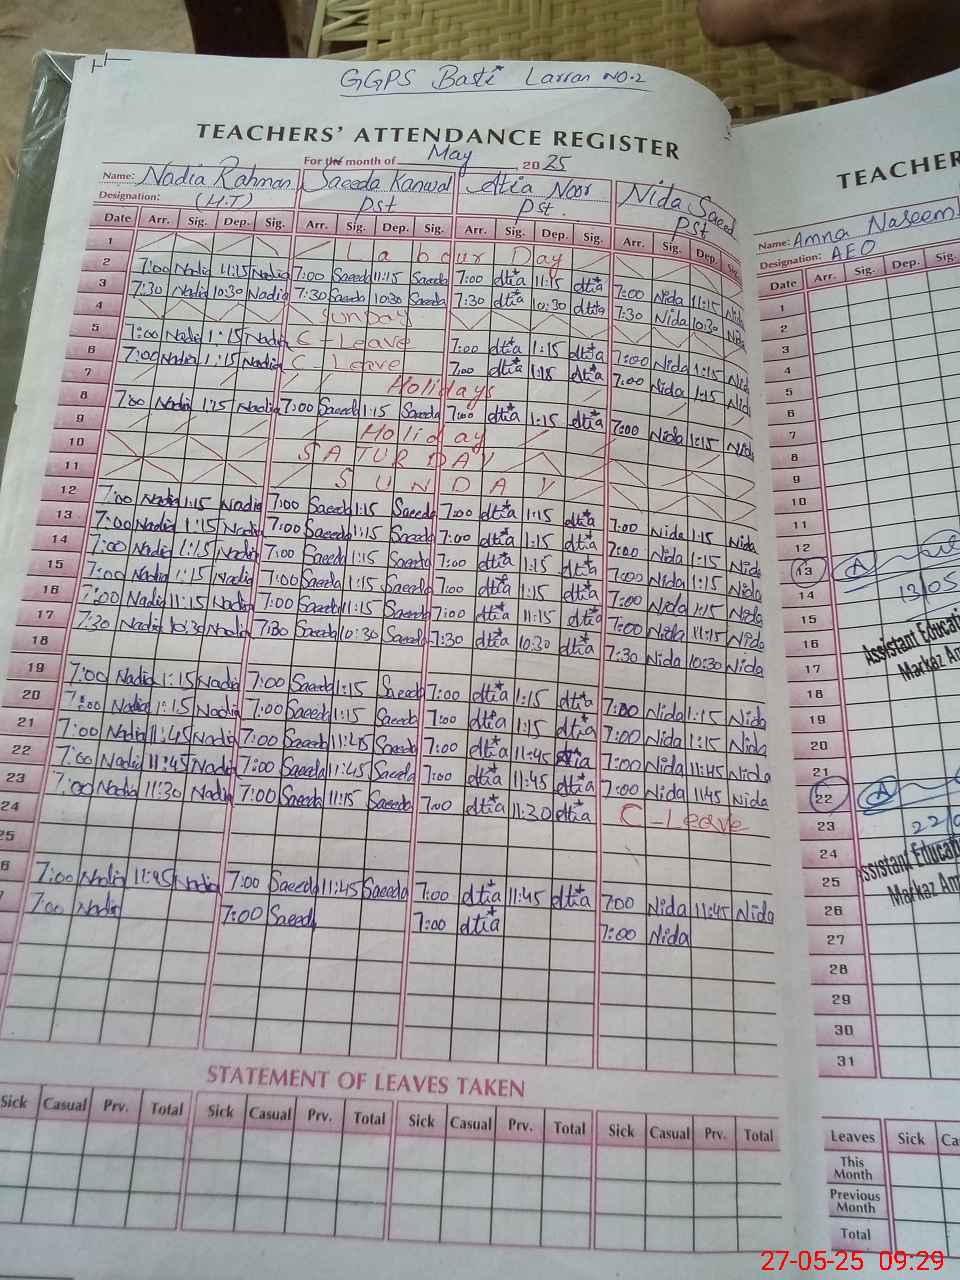 GGPS Basti Larran NO.2
TEACHERS' ATTENDANCE REGISTER
For the month of May 2025
Name: Nadia Rahman Saeeda Kanwal Atia Noor Nida Saeed
Designation: (H.T) Pst Pst. Pst
Date Arr. Sig. Dep. Sig. Arr. Sig. Dep. Sig. Arr. Sig. Dep. Sig. Arr. Sig. Dep. Sig.
1 Labour Day
2 7:00 Nadia 11:15 Nadia 7:00 Saeeda 11:15 Saeeda 7:00 Atia 11:15 Atia 7:00 Nida 11:15 Nida
3 7:30 Nadia 10:30 Nadia 7:30 Saeeda 10:30 Saeeda 7:30 Atia 10:30 Atia 7:30 Nida 10:30 Nida
4 Sunday
5 7:00 Nadia 1:15 Nadia C-Leave 7:00 Atia 1:15 Atia 7:00 Nida 1:15 Nida
6 7:00 Nadia 1:15 Nadia C-Leave 7:00 Atia 1:15 Atia 7:00 Nida 1:15 Nida
7 Holidays
8 7:00 Nadia 1:15 Nadia 7:00 Saeeda 1:15 Saeeda 7:00 Atia 1:15 Atia 7:00 Nida 1:15 Nida
9 Holiday
10 SATURDAY
11 SUNDAY
12 7:00 Nadia 1:15 Nadia 7:00 Saeeda 1:15 Saeeda 7:00 Atia 1:15 Atia 7:00 Nida 1:15 Nida
13 7:00 Nadia 1:15 Nadia 7:00 Saeeda 1:15 Saeeda 7:00 Atia 1:15 Atia 7:00 Nida 1:15 Nida
14 7:00 Nadia 1:15 Nadia 7:00 Saeeda 1:15 Saeeda 7:00 Atia 1:15 Atia 7:00 Nida 1:15 Nida
15 7:00 Nadia 1:15 Nadia 7:00 Saeeda 1:15 Saeeda 7:00 Atia 1:15 Atia 7:00 Nida 1:15 Nida
16 7:00 Nadia 11:15 Nadia 7:00 Saeeda 11:15 Saeeda 7:00 Atia 11:15 Atia 7:00 Nida 11:15 Nida
17 7:30 Nadia 10:30 Nadia 7:30 Saeeda 10:30 Saeeda 7:30 Atia 10:30 Atia 7:30 Nida 10:30 Nida
18
19 7:00 Nadia 1:15 Nadia 7:00 Saeeda 1:15 Saeeda 7:00 Atia 1:15 Atia 7:00 Nida 1:15 Nida
20 7:00 Nadia 1:15 Nadia 7:00 Saeeda 1:15 Saeeda 7:00 Atia 1:15 Atia 7:00 Nida 1:15 Nida
21 7:00 Nadia 11:45 Nadia 7:00 Saeeda 11:45 Saeeda 7:00 Atia 11:45 Atia 7:00 Nida 11:45 Nida
22 7:00 Nadia 11:45 Nadia 7:00 Saeeda 11:45 Saeeda 7:00 Atia 11:45 Atia 7:00 Nida 11:45 Nida
23 7:00 Nadia 11:30 Nadia 7:00 Saeeda 11:15 Saeeda 7:00 Atia 11:30 Atia C-Leave
24
25
6 7:00 Nadia 11:45 Nadia 7:00 Saeeda 11:45 Saeeda 7:00 Atia 11:45 Atia 7:00 Nida 11:45 Nida
7:00 Nadia 7:00 Saeed 7:00 Atia 7:00 Nida
STATEMENT OF LEAVES TAKEN
Sick Casual Prv. Total Sick Casual Prv. Total Sick Casual Prv. Total Sick Casual Prv. Total
TEACHER
Name: Amna Naseem
Designation: AEO
Date Arr. Sig. Dep. Sig.
1
2
3
4
5
6
7
8
9
10
11
12
13
14 13/05
15
16 Assistant Educati
17 Markaz Am
18
19
20
21
22
23 22/0
24 Assistant Educat
25 Markaz Am
26
27
28
29
30
31
Leaves Sick Ca
This Month
Previous Month
Total
27-05-25 09:29